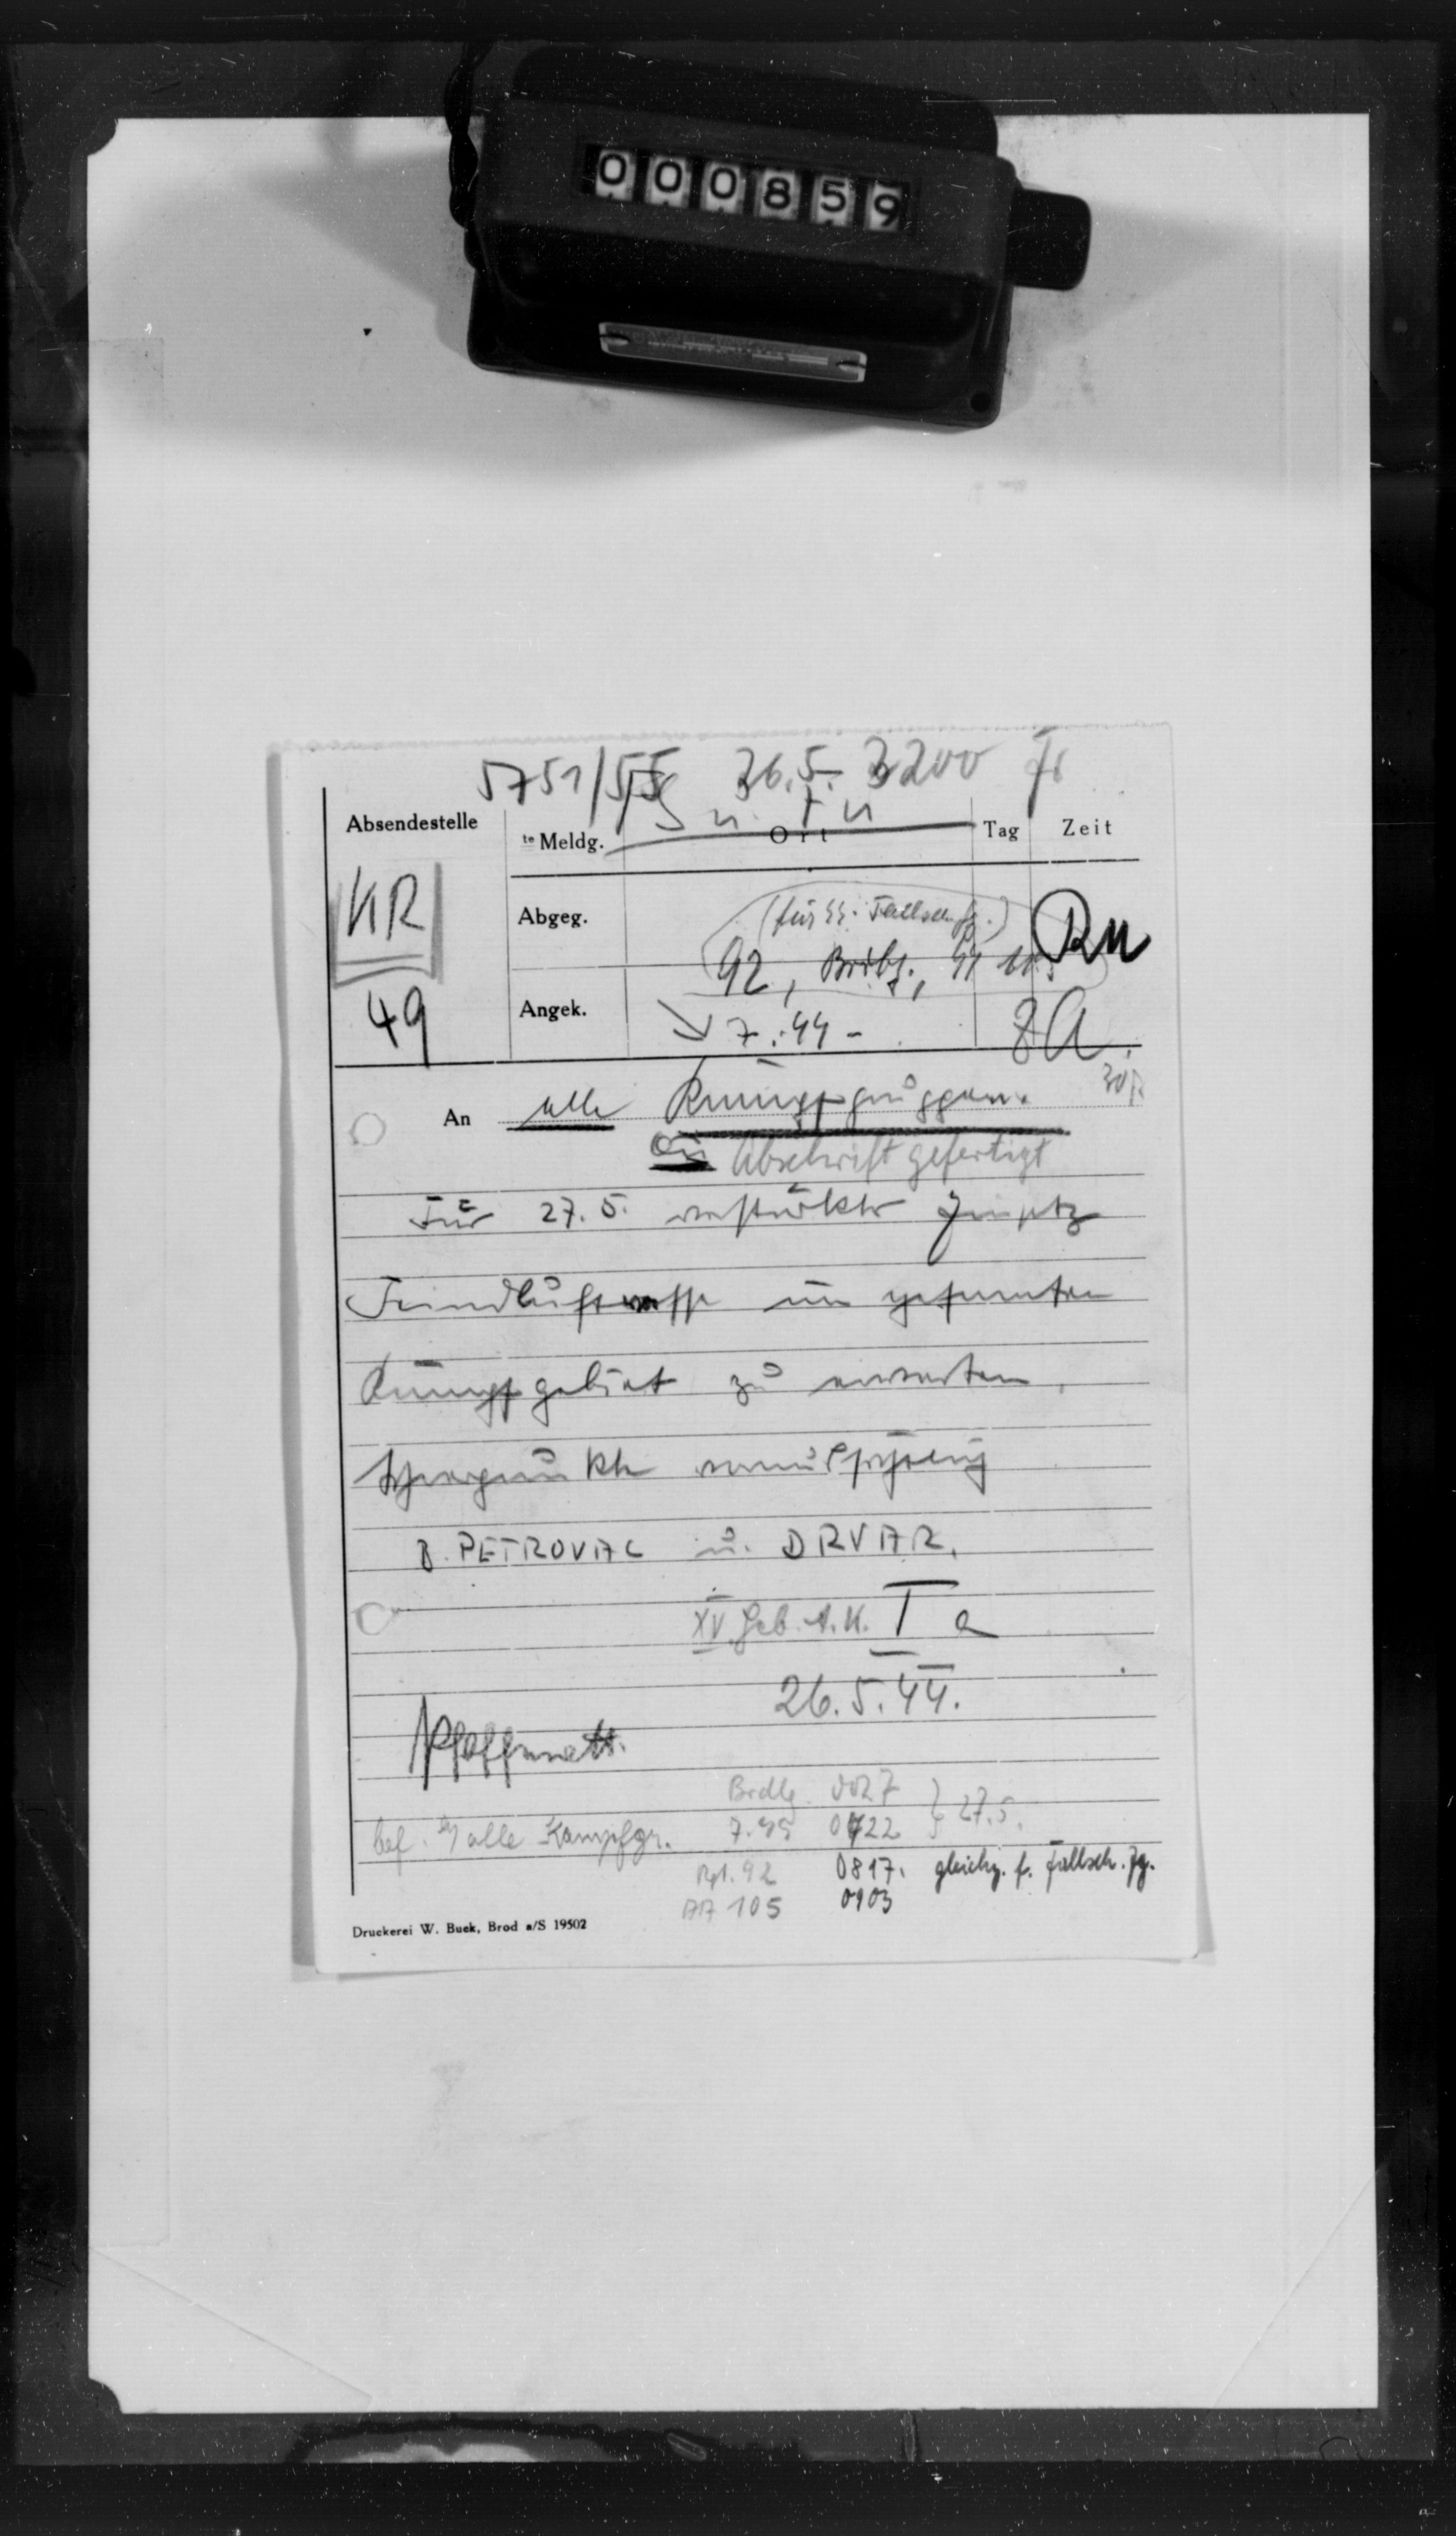 000859
5751/55 26.5. 2200 Fr
Absendestelle
te Meldg. Ort Tag Zeit
KR
Abgeg.
(für SS. Fallsch. Jg.)
92, Brdbg.,
49
Angek.
7. SS -
An alle Kampfgruppen.
Abschrift gefertigt
Für 27.5. verstärkter Einsatz
Feindluftwaffe im gesamten
Kampfgebiet zu erwarten.
Schwerpunkte voraussichtlich
B. PETROVAC u. DRVAR.
XV. Geb. A.K. Ia
26.5.44.
Brdbg. 0027
bef. an alle Kampfgr. 7. SS 0722 } 27.5.
Rgt. 92 0817. gleichz. f. Fallsch. Jg.
AA 105 0903
Druckerei W. Buek, Brod a/S 19502